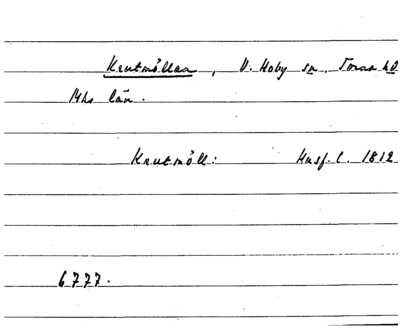 Krutmöllan, V. Hoby sn, Torna hd
Mhs län.
Krutmöll: Husf. l. 1812
6777.